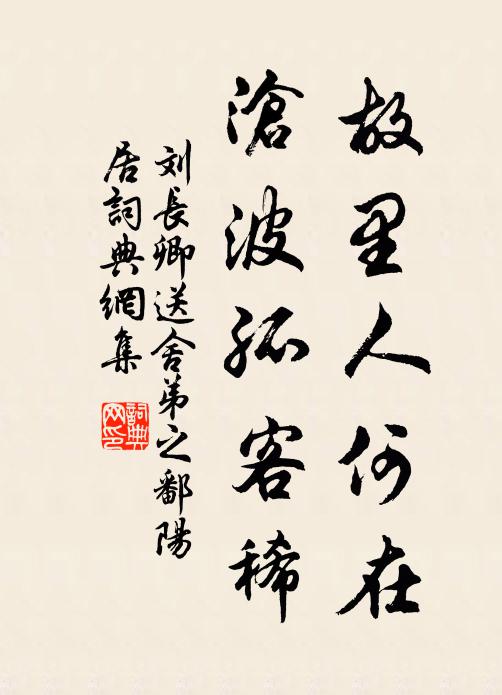 故里人何在
滄波孤客稀
刘長卿送舍弟之鄱陽
居詞典網集
詞典
网印